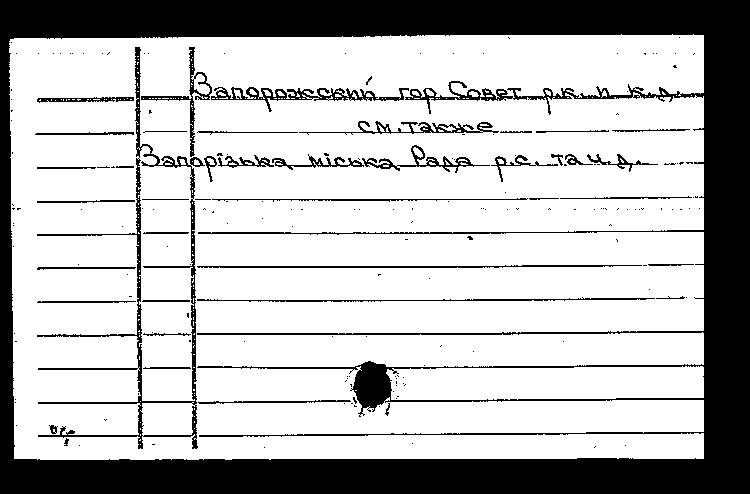 Запорожский гор Совет р.к. и к.д.
см. также
Запорізька міська Рада р.с. та ч.д.